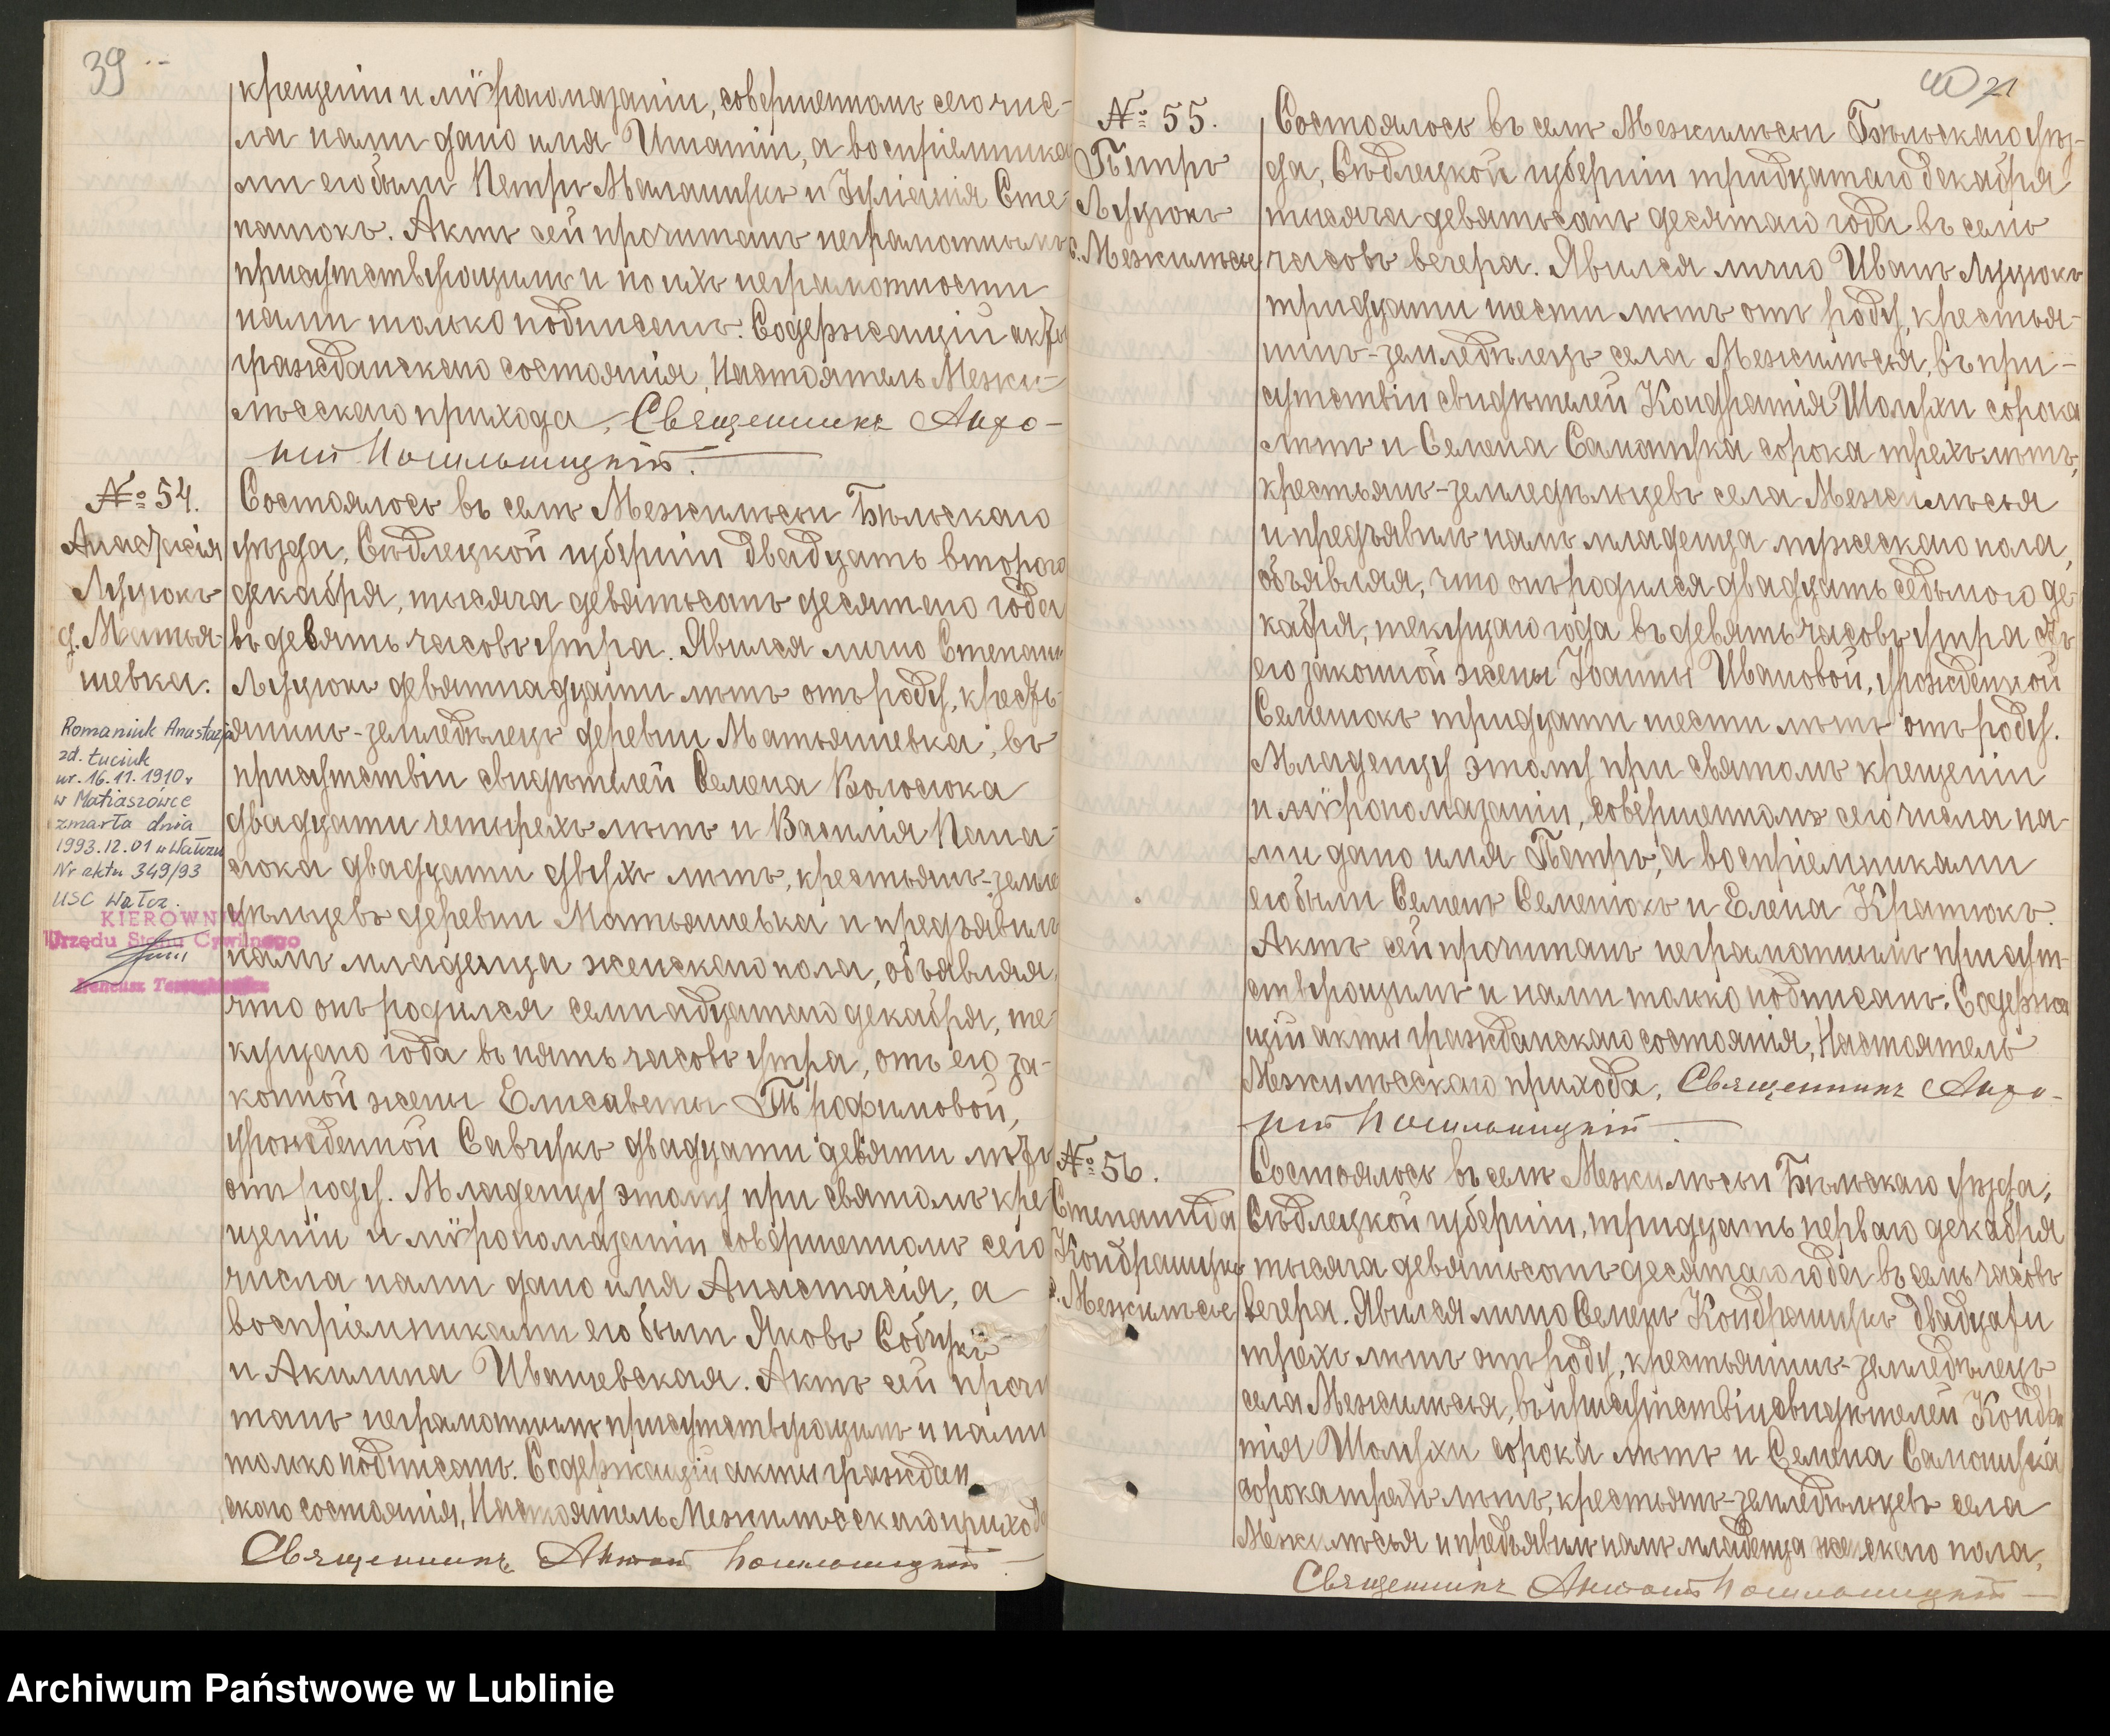 39
крещеніи и мѵропомазаніи, совершенномъ сего чис-
ла нами дано имя Игнатій, а воспріемника
ми его были Петръ Малашукъ и Іуліанія Сте-
панюкъ. Актъ сей прочитанъ неграмотнымъ
присутствующимъ и по ихъ неграмотности
нами только подписанъ. Содержащій акты
гражданскаго состоянія, Настоятель Межи-
лѣсскаго прихода, Священникъ
№ 54.
Анастасія
Луцюкъ
д. Матья-
шевка.
Romaniuk Anastazja
zd. Łuciuk
ur. 16.11.1910 r
w Matiaszówce
zmarła dnia
1993.12.01 w Wałczu
Nr aktu 349/93
USC Wałcz.
KIEROWNIK
Urzędu Stanu Cywilnego
Ireneusz
Состоялось въ селѣ Межилѣсьи Бѣльскаго
уѣзда, Сѣдлецкой губерніи двадцать второго
декабря, тысяча девятьсотъ десятаго года
въ девять часовъ утра. Явился лично Степанъ
Луцюкъ девятнадцати лѣтъ отъ роду, кресть-
янинъ-земледѣлецъ деревни Матьяшевка, въ
присутствіи свидѣтелей Семена Волосюка
двадцати четырехъ лѣтъ и Василія Пана-
сюка двадцати двухъ лѣтъ, крестьянъ-земле
дѣльцевъ деревни Матьяшевка и предъявилъ
намъ младенца женскаго пола, объявляя,
что онъ родился семнадцатаго декабря, те-
кущаго года въ пять часовъ утра, отъ его за-
конной жены Елисаветы Трофимовой,
урожденной Савчукъ двадцати девяти лѣтъ
отъ роду. Младенцу этому при святомъ кре
щеніи и мѵропомазаніи совершенномъ сего
числа нами дано имя Анастасія, а
воспріемниками его были Яковъ Собчукъ
и Акилина Ивашевская. Актъ сей прочи
танъ неграмотнымъ присутствующимъ и нами
только подписанъ. Содержащій акты граждан
скаго состоянія, Настоятель Межилѣсскаго прихода
Священникъ
40 21
№ 55.
Петръ
Луцюкъ
с. Межилѣсье
Состоялось въ селѣ Межилѣсьи Бѣльскаго уѣз-
да, Сѣдлецкой губерніи тридцатаго декабря
тысяча девятьсотъ десятаго года въ семь
часовъ вечера. Явился лично Иванъ Луцюкъ
тридцати шести лѣтъ отъ роду, крестья-
нинъ-земледѣлецъ села Межилѣсья, въ при-
сутствіи свидѣтелей Кондратія Шолухи сорока
лѣтъ и Семена Самошука сорока трехъ лѣтъ,
крестьянъ-земледѣльцевъ села Межилѣсья
и предъявилъ намъ младенца мужескаго пола,
объявляя, что онъ родился двадцать седьмого де-
кабря, текущаго года въ девять часовъ утра отъ
его законной жены Іоанны Ивановой, урожденной
Семенюкъ тридцати шести лѣтъ отъ роду.
Младенцу этому при святомъ крещеніи
и мѵропомазаніи, совершенномъ сего числа на-
ми дано имя Петръ, а воспріемниками
его были Семенъ Семенюкъ и Елена Кратюкъ.
Актъ сей прочитанъ неграмотнымъ присут-
ствующимъ и нами только подписанъ. Содержа
щій акты гражданскаго состоянія, Настоятель
Межилѣсскаго прихода, Священникъ
№ 56.
Степанида
Кондрашукъ
с. Межилѣсье
Состоялось въ селѣ Межилѣсьи Бѣльскаго уѣзда,
Сѣдлецкой губерніи, тридцать перваго декабря
тысяча девятьсотъ десятаго года въ семь часовъ
вечера. Явился лично Семенъ Кондрашукъ двадцати
трехъ лѣтъ отъ роду, крестьянинъ-земледѣлецъ
села Межилѣсья, въ присутствіи свидѣтелей Кондра
тія Шолухи сорока лѣтъ и Семена Самошука
сорока трехъ лѣтъ, крестьянъ-земледѣльцевъ села
Межилѣсья и предъявилъ намъ младенца женскаго пола,
Священникъ
Archiwum Państwowe w Lublinie